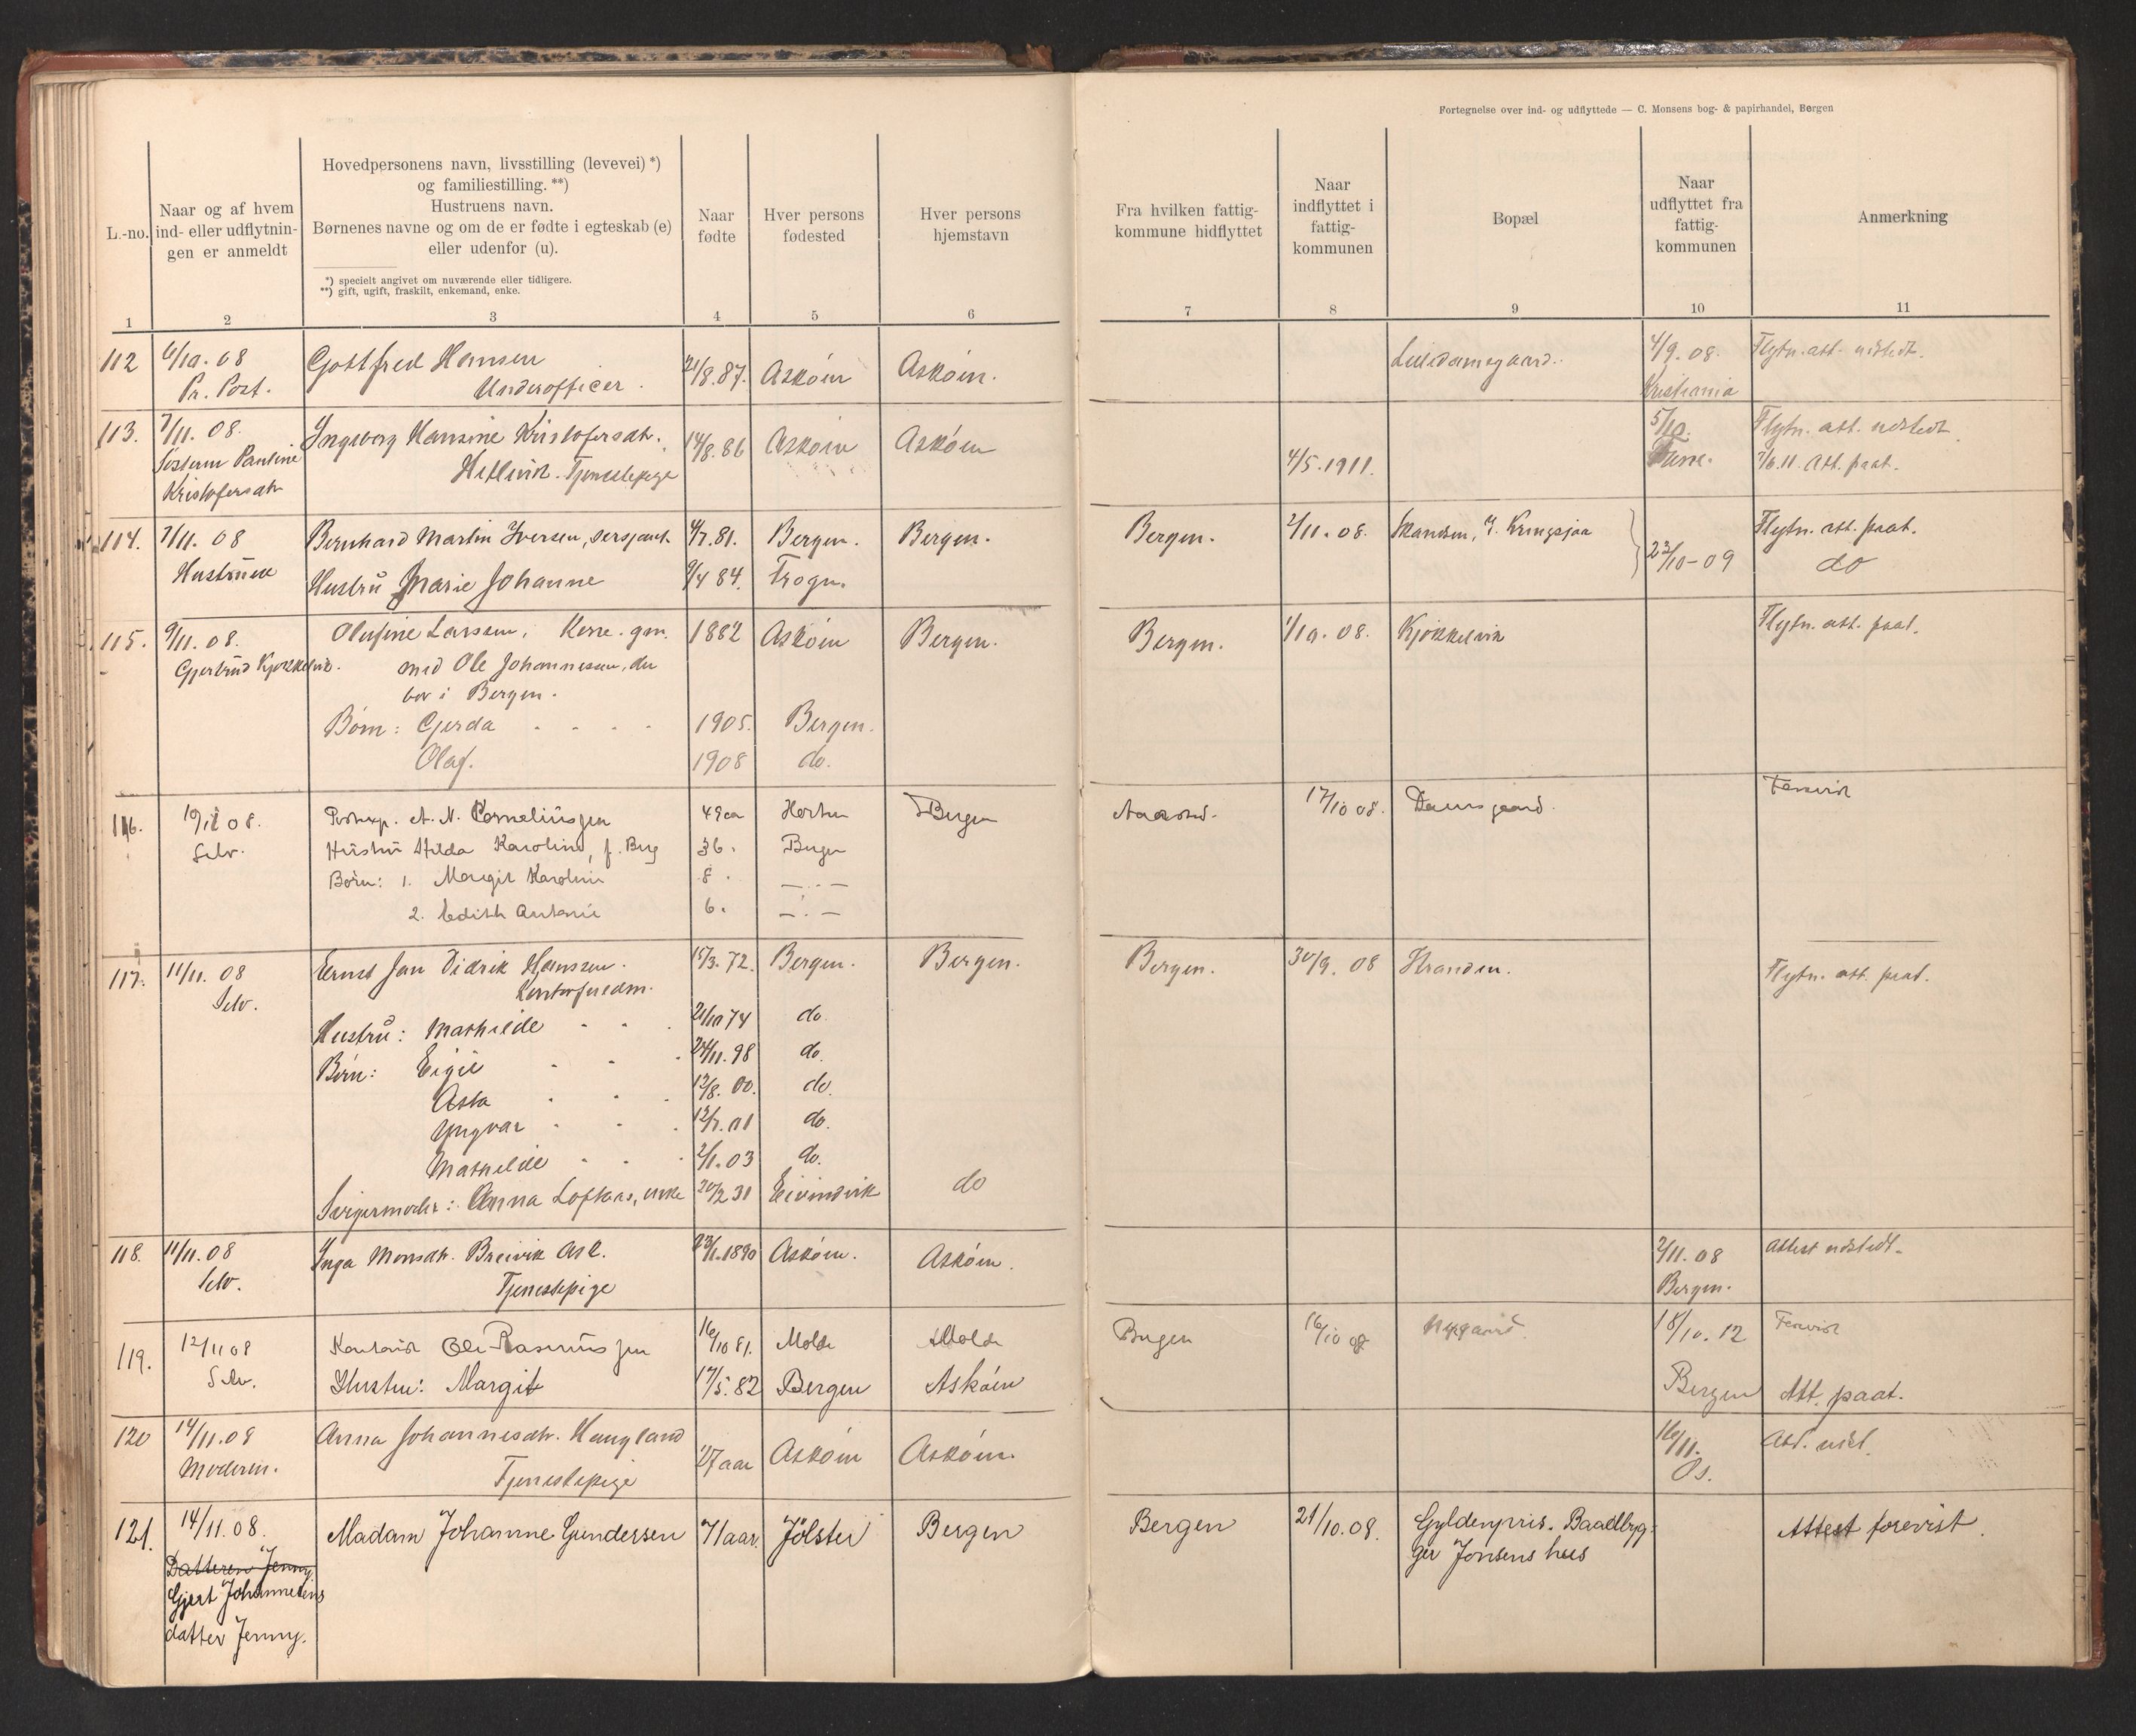 Fortegnelse over ind- og udflyttede — C. Monsens bog- & papirhandel, Bergen
L.-no.
Naar og af hvem
ind- eller udflytnin-
gen er anmeldt
Hovedpersonens navn, livsstilling (levevei) *)
og familiestilling. **)
Hustruens navn.
Børnenes navne og om de er fødte i egteskab (e)
eller udenfor (u).
*) specielt angivet om nuværende eller tidligere.
**) gift, ugift, fraskilt, enkemand, enke.
Naar
fødte
Hver persons
fødested
Hver persons
hjemstavn
Fra hvilken fattig-
kommune hidflyttet
Naar
indflyttet i
fattig-
kommunen
Bopæl
Naar
udflyttet fra
fattig-
kommunen
Anmerkning
1 2 3 4 5 6 7 8 9 10 11
112 6/10. 08 Gottfred Hansen 21/8.87. Askøen Askøen. 4/9. 08. Flytn. att. udstedt.
Pr. Post. Underofficer. Kristiania
113. 7/11. 08. Ingeborg Hansine Kristofersdtr. 14/8.86 Askøen Askøen 5/10. Flytn. att. udstedt.
Søsteren Pauline Tjenestepige 4/5.1911. 7/6.11. Att. paat.
Kristofersdtr
114. 7/11. 08 Bernhard Martin Iversen, sersjant. 4/7.81. Bergen. Bergen. Bergen. 2/11. 08. Kringsjaa Flytn. att. paat.
Hustruen Hustru Marie Johanne 9/4 84. Frogn. 23/10-09 do
115. 9/11. 08. Olufine Larssen, gm. 1882 Askøen Bergen. Bergen. 1/10. 08. Kjøkkelvik Flytn. att. paat.
Gjertrud Kjøkkelvik. med Ole Johannessen, der
bor i Bergen.
Børn: Gjerda 1905. Bergen.
Olaf. 1908 do.
116. 10/11 08. Postexp. A. N. Corneliussen 42 aa Horten Bergen 17/10 08. Damsgaard. Forevist
Selv. Hustru Hilda Karoline, f. Berg 36. Bergen
Børn: 1. Margit Karoline 8. —..—
2. Edith Antonie 6. —..—
117. 11/11. 08 Ernst Jan Didrik Hanssen. 15/3. 72. Bergen. Bergen. Bergen. 30/9. 08 Stranden. Flytn. att. paat.
Selv. Kontorfuldm.
Hustru: Mathilde 21/10 74 do
Børn: Eigil 24/11. 98 do.
Asta 12/8. 00. do.
Yngvar 12/7. 01 do.
Mathilde 2/1. 03 do.
Svigermoder: Anna Loftaas, enke 20/2 31 Eivindvik do
118. 11/11. 08 Inga Monsdtr. Breivik Ask. 23/1.1890 Askøen. Askøen. 2/11. 08 Attest udstedt.
Selv. Tjenestepige Bergen.
119. 12/11 08 Kontorist Ole Rasmussen 16/10 81. Molde Molde Bergen 16/10 08 Nygaard. 18/10. 12 Forevist
Selv. Hustru: Margit 17/5. 82 Bergen Askøen Bergen Att. paat.
120 14/11. 08 Anna Johannesdtr. Haugland 27 aar Askøen Askøen. 16/11. Att. udst.
Moderen. Tjenestepige
121. 14/11. 08. Madam Johanne Gundersen 71 aar. Jølster Bergen Bergen 21/10. 08. Gyldenpris. Baadbyg-
Datteren Jenny ger Jonsens hus Attest forevist.
Gjert Johannesens
datter Jenny.